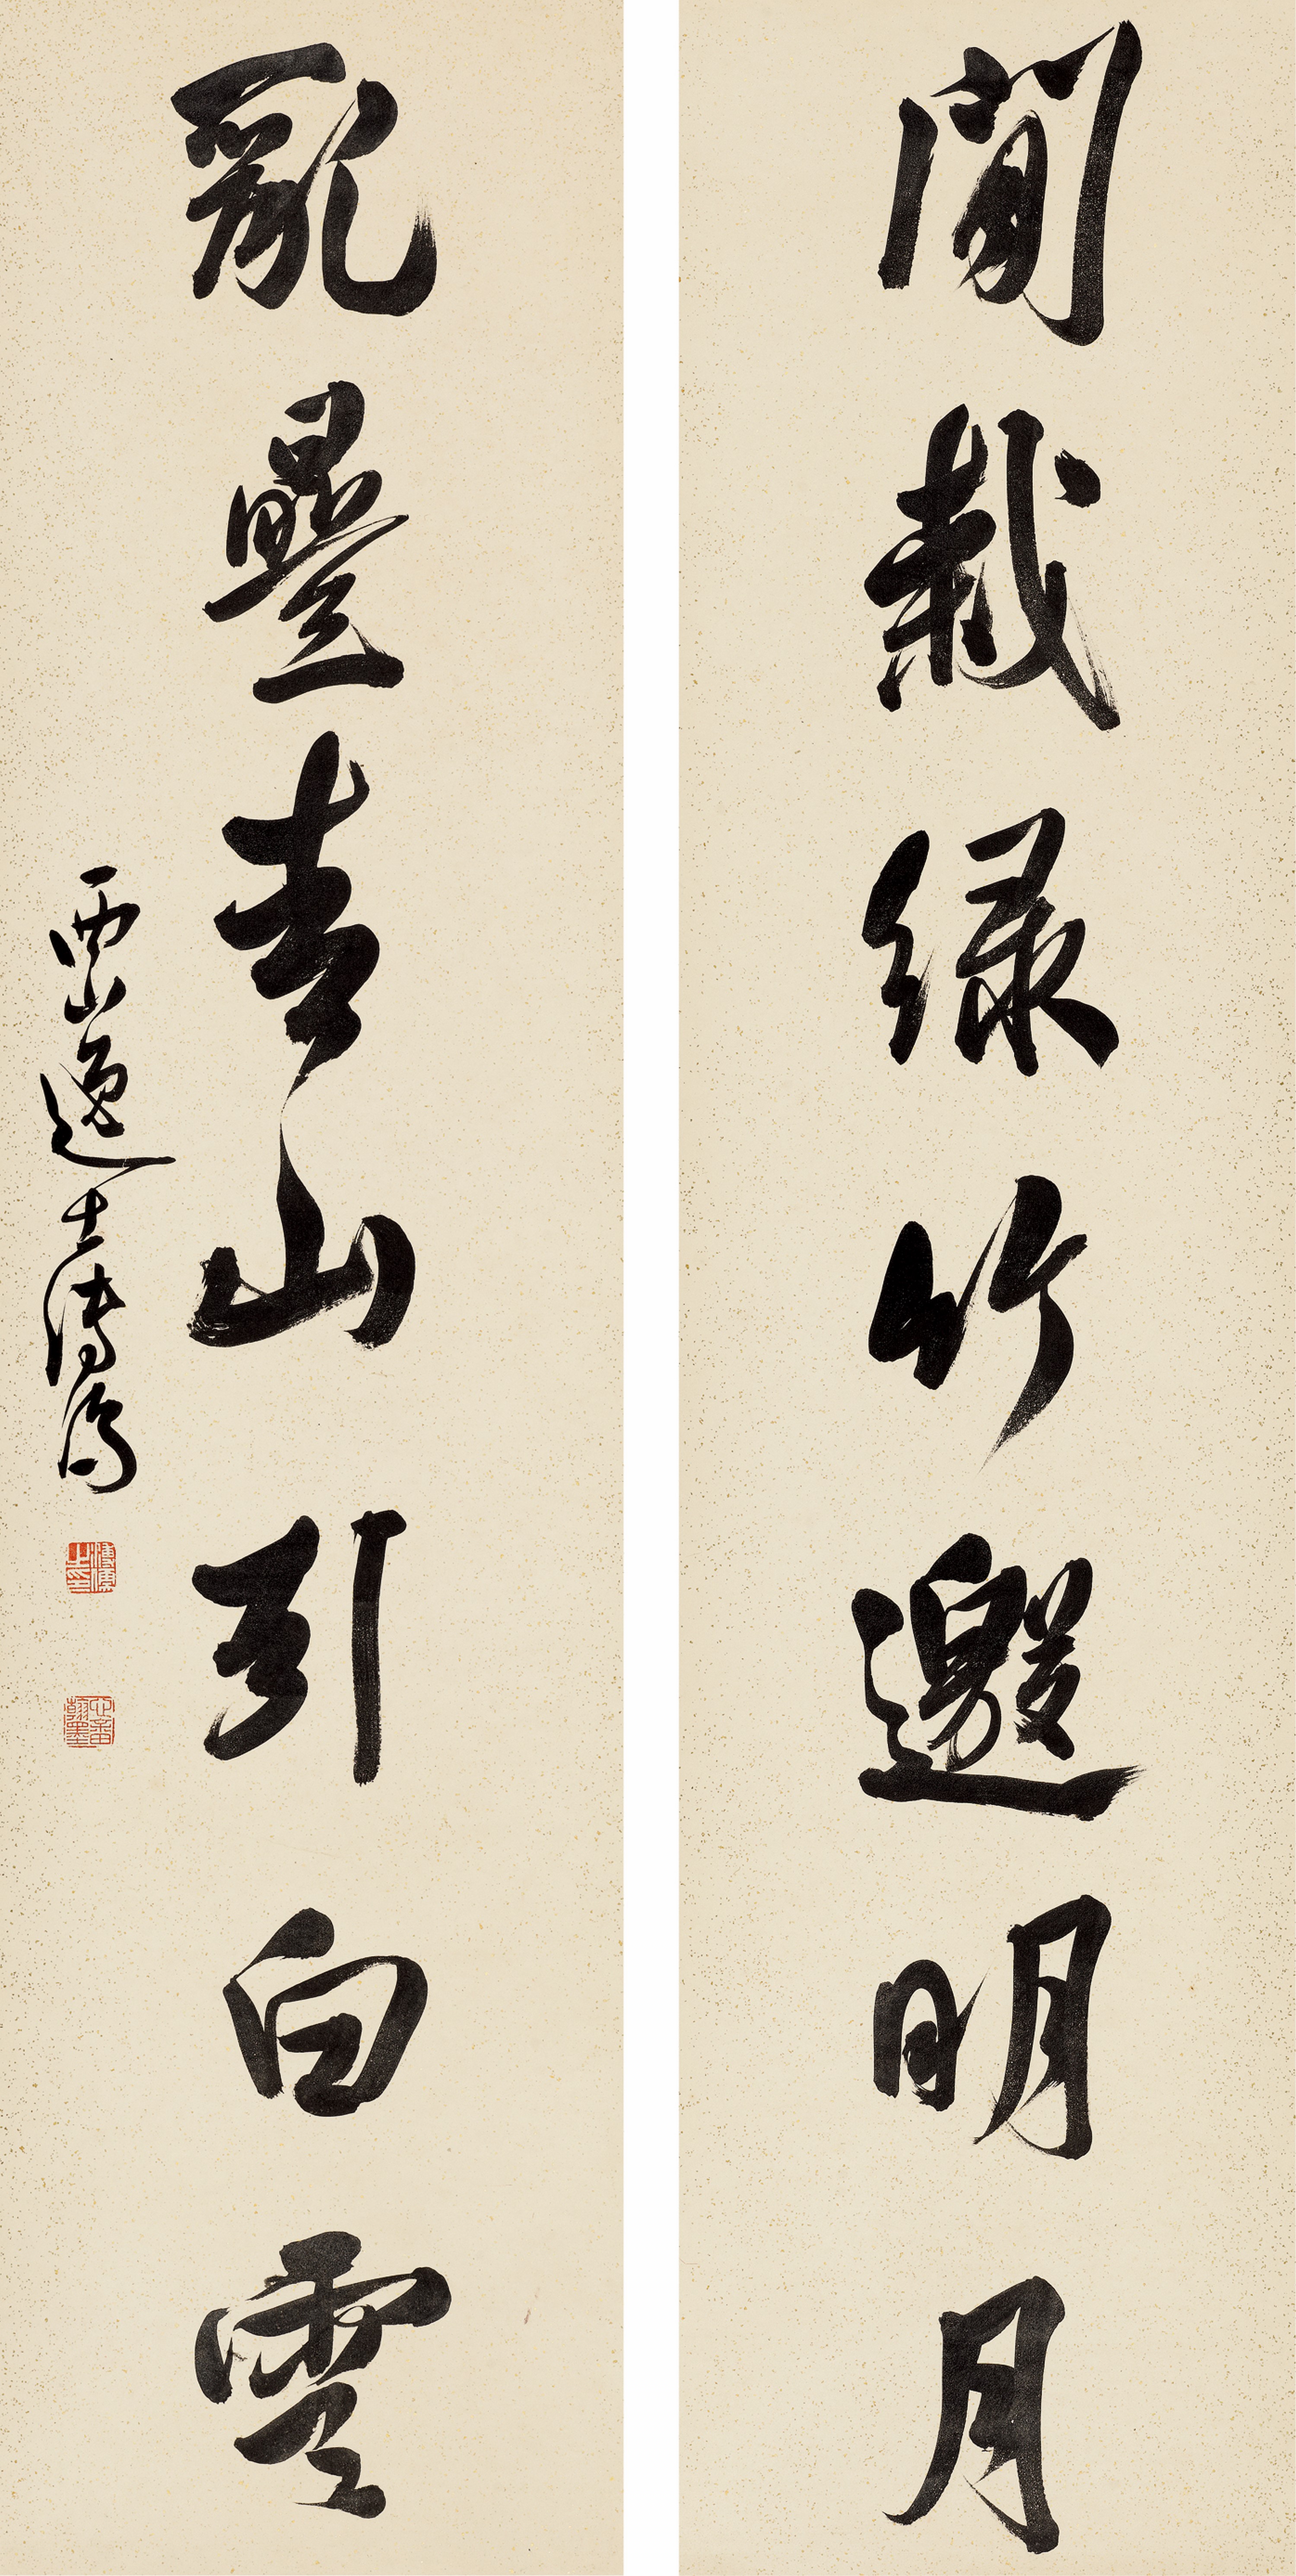 閒栽綠竹邀明月
亂疊青山引白雲
西山逸士溥儒
溥儒之印